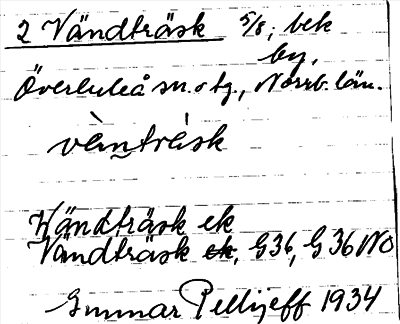 2 Vändträsk 5/8; bek
by,
Överluleå sn. o tg., Norrb. län.
vàntrȧsk
Vändträsk ek
Vändträsk ek, G36, G36 NO
Gunnar Pellijeff 1934